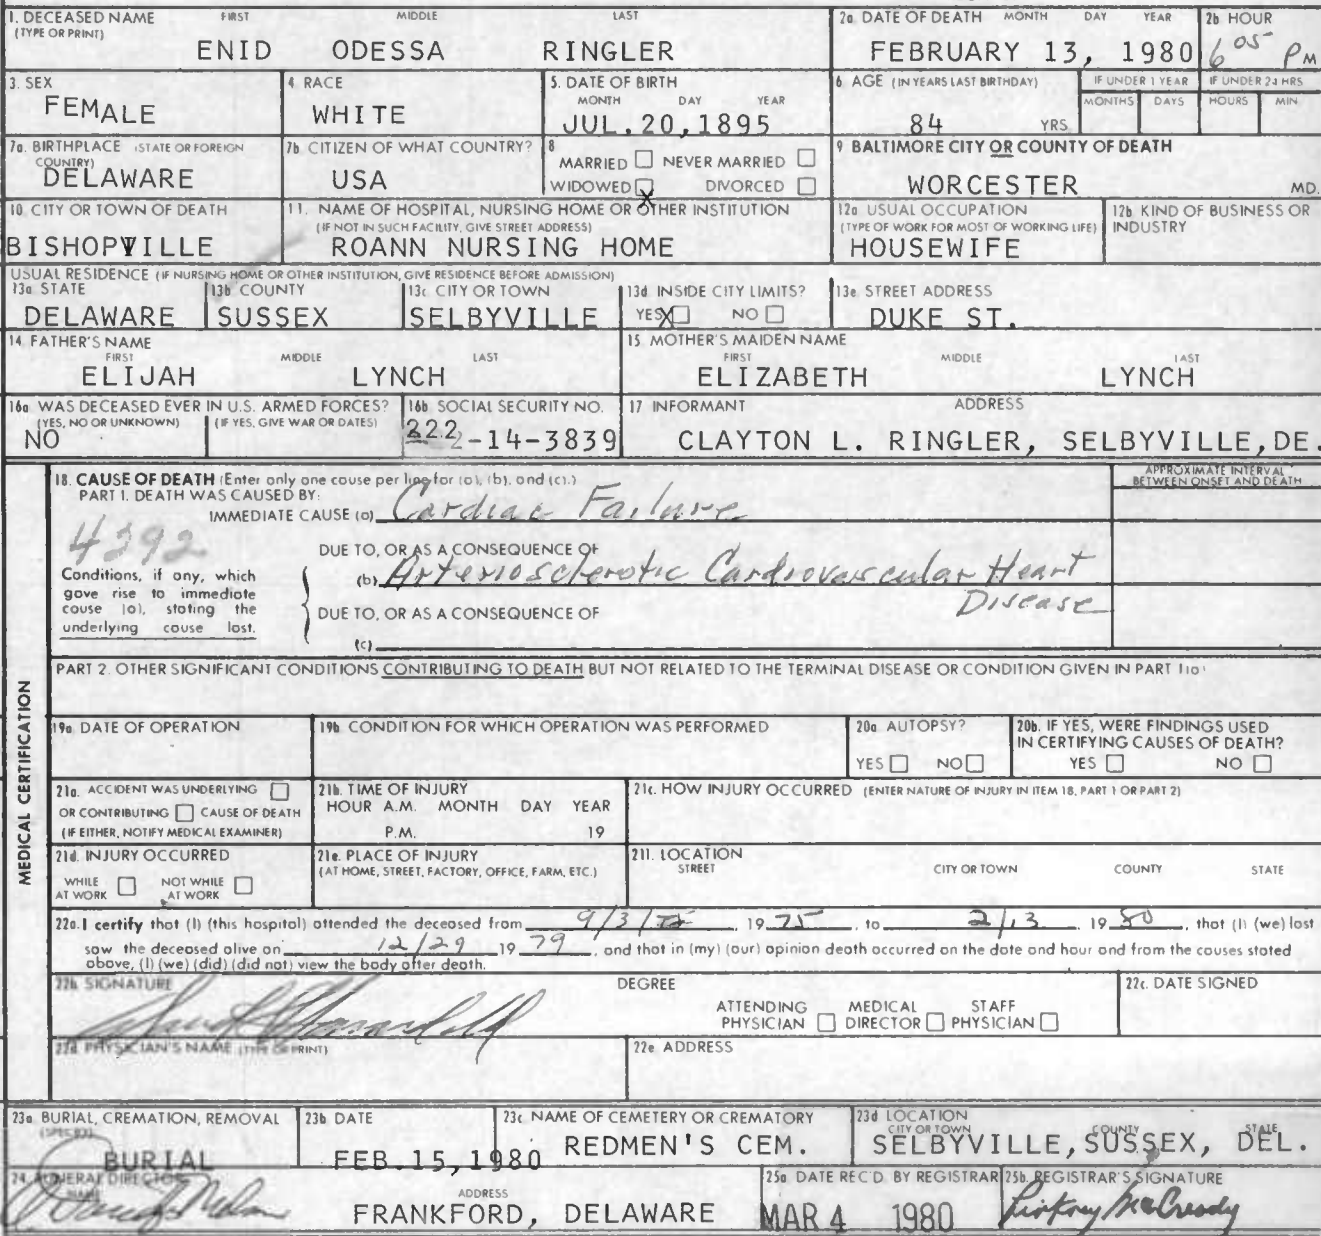 1. DECEASED NAME FIRST MIDDLE LAST
(TYPE OR PRINT)
ENID ODESSA RINGLER
2a DATE OF DEATH MONTH DAY YEAR
FEBRUARY 13, 1980
2b HOUR
6 05 PM
3. SEX
FEMALE
4 RACE
WHITE
5. DATE OF BIRTH
MONTH DAY YEAR
JUL.20,1895
6 AGE (IN YEARS LAST BIRTHDAY)
84 YRS.
IF UNDER 1 YEAR
MONTHS DAYS
IF UNDER 24 HRS
HOURS MIN
7a. BIRTHPLACE (STATE OR FOREIGN
COUNTRY)
DELAWARE
7b CITIZEN OF WHAT COUNTRY?
USA
8
MARRIED NEVER MARRIED
WIDOWED X DIVORCED
9 BALTIMORE CITY OR COUNTY OF DEATH
WORCESTER MD.
10 CITY OR TOWN OF DEATH
BISHOPVILLE
11. NAME OF HOSPITAL, NURSING HOME OR OTHER INSTITUTION
(IF NOT IN SUCH FACILITY, GIVE STREET ADDRESS)
ROANN NURSING HOME
12a USUAL OCCUPATION
(TYPE OF WORK FOR MOST OF WORKING LIFE)
HOUSEWIFE
12b KIND OF BUSINESS OR
INDUSTRY
USUAL RESIDENCE (IF NURSING HOME OR OTHER INSTITUTION, GIVE RESIDENCE BEFORE ADMISSION)
13a STATE
DELAWARE
13b COUNTY
SUSSEX
13c CITY OR TOWN
SELBYVILLE
13d INSIDE CITY LIMITS?
YES X NO
13e STREET ADDRESS
DUKE ST.
14 FATHER'S NAME
FIRST MIDDLE LAST
ELIJAH LYNCH
15 MOTHER'S MAIDEN NAME
FIRST MIDDLE LAST
ELIZABETH LYNCH
16a WAS DECEASED EVER IN U.S. ARMED FORCES?
(YES, NO OR UNKNOWN) (IF YES, GIVE WAR OR DATES)
NO
16b SOCIAL SECURITY NO.
222-14-3839
17 INFORMANT ADDRESS
CLAYTON L. RINGLER, SELBYVILLE,DE.
MEDICAL CERTIFICATION
18. CAUSE OF DEATH (Enter only one cause per line for (a), (b), and (c).)
PART I. DEATH WAS CAUSED BY:
APPROXIMATE INTERVAL
BETWEEN ONSET AND DEATH
IMMEDIATE CAUSE (a) Cardiac Failure
4292
DUE TO, OR AS A CONSEQUENCE OF
Conditions, if any, which
gave rise to immediate
cause (a), stating the
underlying cause last.
(b) Arteriosclerotic Cardiovascular Heart
Disease
DUE TO, OR AS A CONSEQUENCE OF
(c)
PART 2. OTHER SIGNIFICANT CONDITIONS CONTRIBUTING TO DEATH BUT NOT RELATED TO THE TERMINAL DISEASE OR CONDITION GIVEN IN PART 1(a)
19a. DATE OF OPERATION
19b CONDITION FOR WHICH OPERATION WAS PERFORMED
20a AUTOPSY?
YES NO
20b. IF YES, WERE FINDINGS USED
IN CERTIFYING CAUSES OF DEATH?
YES NO
21a. ACCIDENT WAS UNDERLYING
OR CONTRIBUTING CAUSE OF DEATH
(IF EITHER, NOTIFY MEDICAL EXAMINER)
21b. TIME OF INJURY
HOUR A.M. MONTH DAY YEAR
P.M. 19
21c. HOW INJURY OCCURRED (ENTER NATURE OF INJURY IN ITEM 18, PART 1 OR PART 2)
21d. INJURY OCCURRED
WHILE AT WORK NOT WHILE AT WORK
21e. PLACE OF INJURY
(AT HOME, STREET, FACTORY, OFFICE, FARM, ETC.)
21f. LOCATION
STREET CITY OR TOWN COUNTY STATE
22a. I certify that (I) (this hospital) attended the deceased from 9/3/75, 1975, to 2/13 1980, that (I) (we) last
saw the deceased alive on 12/29 1979, and that in (my) (our) opinion death occurred on the date and hour and from the causes stated
above, (I) (we) (did) (did not) view the body after death.
22b SIGNATURE
DEGREE
ATTENDING PHYSICIAN MEDICAL DIRECTOR STAFF PHYSICIAN
22c. DATE SIGNED
22d. PHYSICIAN'S NAME (TYPE OR PRINT)
22e ADDRESS
23a BURIAL, CREMATION, REMOVAL
(SPECIFY)
BURIAL
23b DATE
FEB.15,1980
23c NAME OF CEMETERY OR CREMATORY
REDMEN'S CEM.
23d LOCATION
CITY OR TOWN COUNTY STATE
SELBYVILLE, SUSSEX, DEL.
24. FUNERAL DIRECTOR
NAME
ADDRESS
FRANKFORD, DELAWARE
25a DATE REC'D. BY REGISTRAR
MAR 4 1980
25b. REGISTRAR'S SIGNATURE